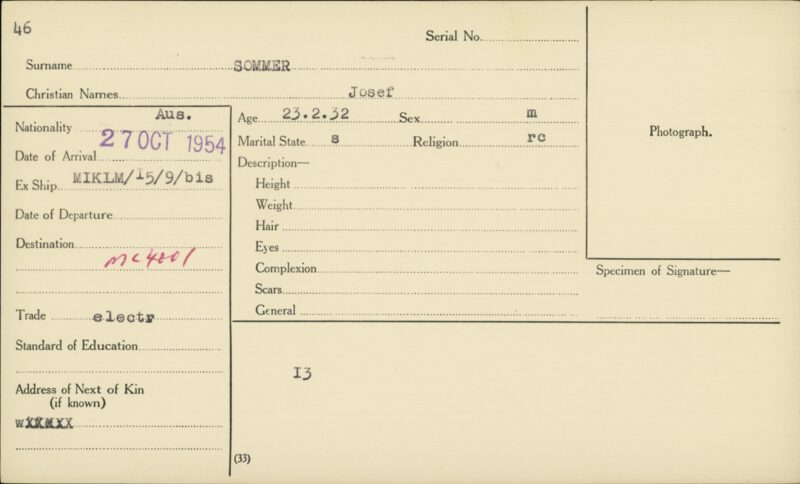 46
Serial No.
Surname SOMMER
Christian Names Josef
Nationality Aus.
Date of Arrival 27 OCT 1954
Ex Ship MIKLM/15/9/bis
Date of Departure
Destination
mc4801
Trade electr
Standard of Education
Address of Next of Kin
(if known)
Age 23.2.32 Sex m
Marital State s Religion rc
Description—
Height
Weight
Hair
Eyes
Complexion
Scars
General
Photograph.
Specimen of Signature—
I3
(33)